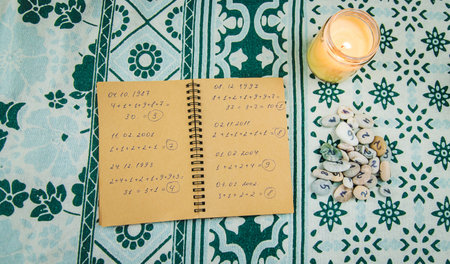 04.10.1987
4+1+1+9+8+7=
30 = 3
11.02.2001
1+1+2+2+1 = 7
24.12.1993
2+4+1+2+1+9+9+3=
31 = 3+1 = 4
08.12.1997
8+1+2+1+9+9+7=
37 = 3+7 = 10 1
02.11.2011
2+1+1+2+1+1 = 8
01.02.2004
1+2+2+4 = 9
2002
= 8